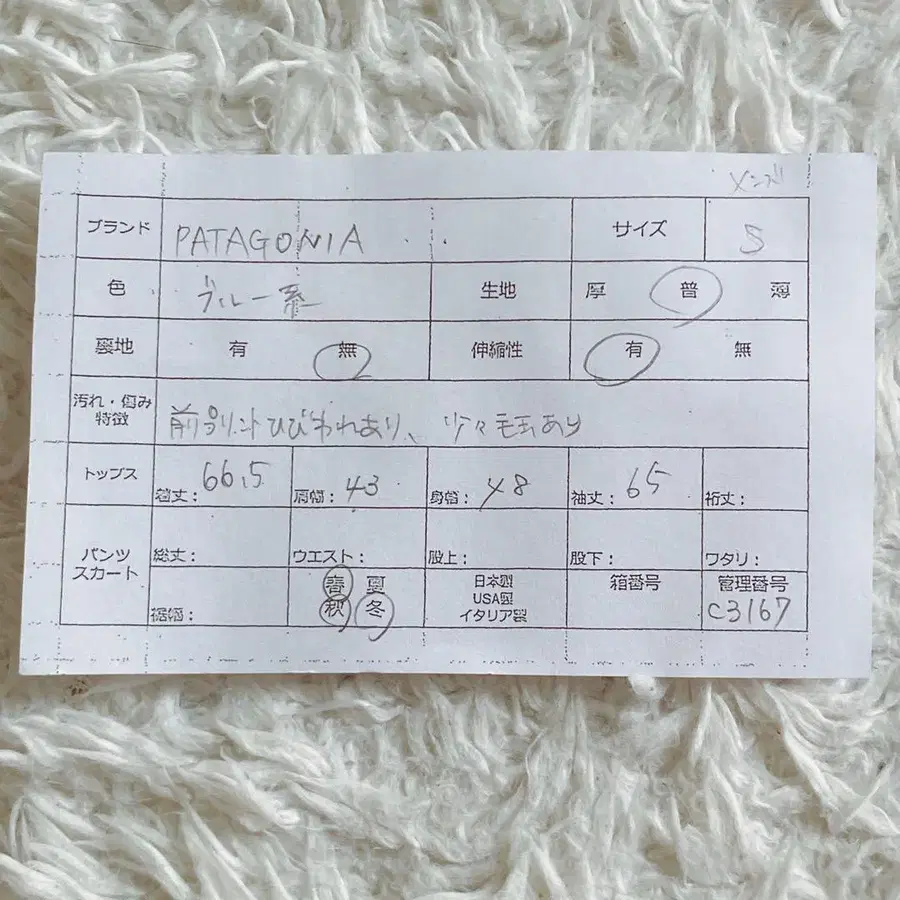 メンズ
ブランド PATAGONIA サイズ S
色 ブルー系 生地 厚 普 薄
裏地 有 無 伸縮性 有 無
汚れ・傷み
特徴 前プリントひびわれあり、少々毛玉あり
トップス 着丈: 66.5 肩幅: 43 身幅: 48 袖丈: 65 裄丈:
パンツ
スカート 総丈: ウエスト: 股上: 股下: ワタリ:
裾幅: 春 夏
秋 冬
日本製
USA製
イタリア製
箱番号
管理番号
C3167